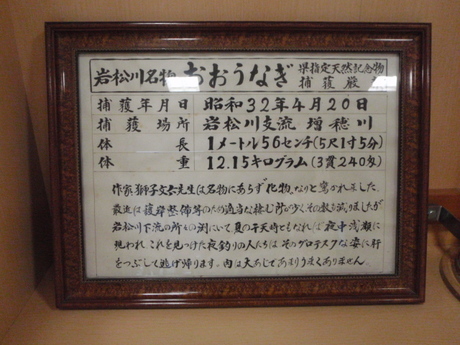 岩松川名物 おおうなぎ 県指定天然記念物
捕獲厳
捕獲年月日 昭和32年4月20日
捕獲場所 岩松川支流 増穂川
体長 1メートル56センチ(5尺1寸5分)
体重 12.15キログラム(3貫240匁)
作家獅子文六先生は名物にあらず"化物"なりと驚かれました。
最近は護岸整備等のため適当な棲む所が少く、その数も減りましたが
岩松川下流の所々の渕にいて夏の干天時ともなれば夜中浅瀬に
現われ、これを見つけた夜釣りの人たちはそのグロテスクな姿に肝
をつぶして逃げ帰ります。肉は大あじであまりうまくありません。